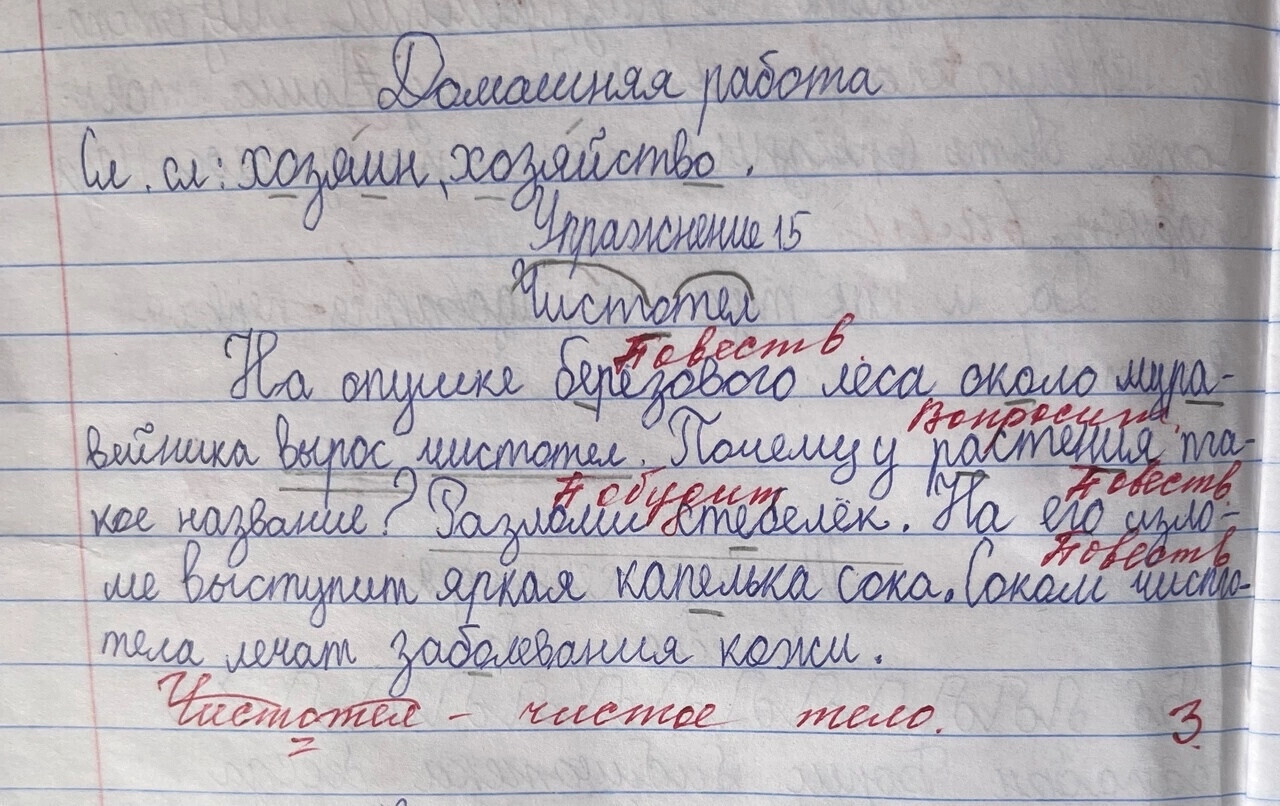 Домашняя работа
Сл. сл: хозяин, хозяйство.
Упражнение 15
Чистотел
Повеств.
На опушке берёзового леса около мура-
Вопросит.
вейника вырос чистотел. Почему у растения та-
Побудит Повеств
кое название? Разломи стебелёк. На его изло-
Повеств
ме выступит яркая капелька сока. Соком чисто-
тела лечат заболевания кожи.
Чистотел - чистое тело. 3